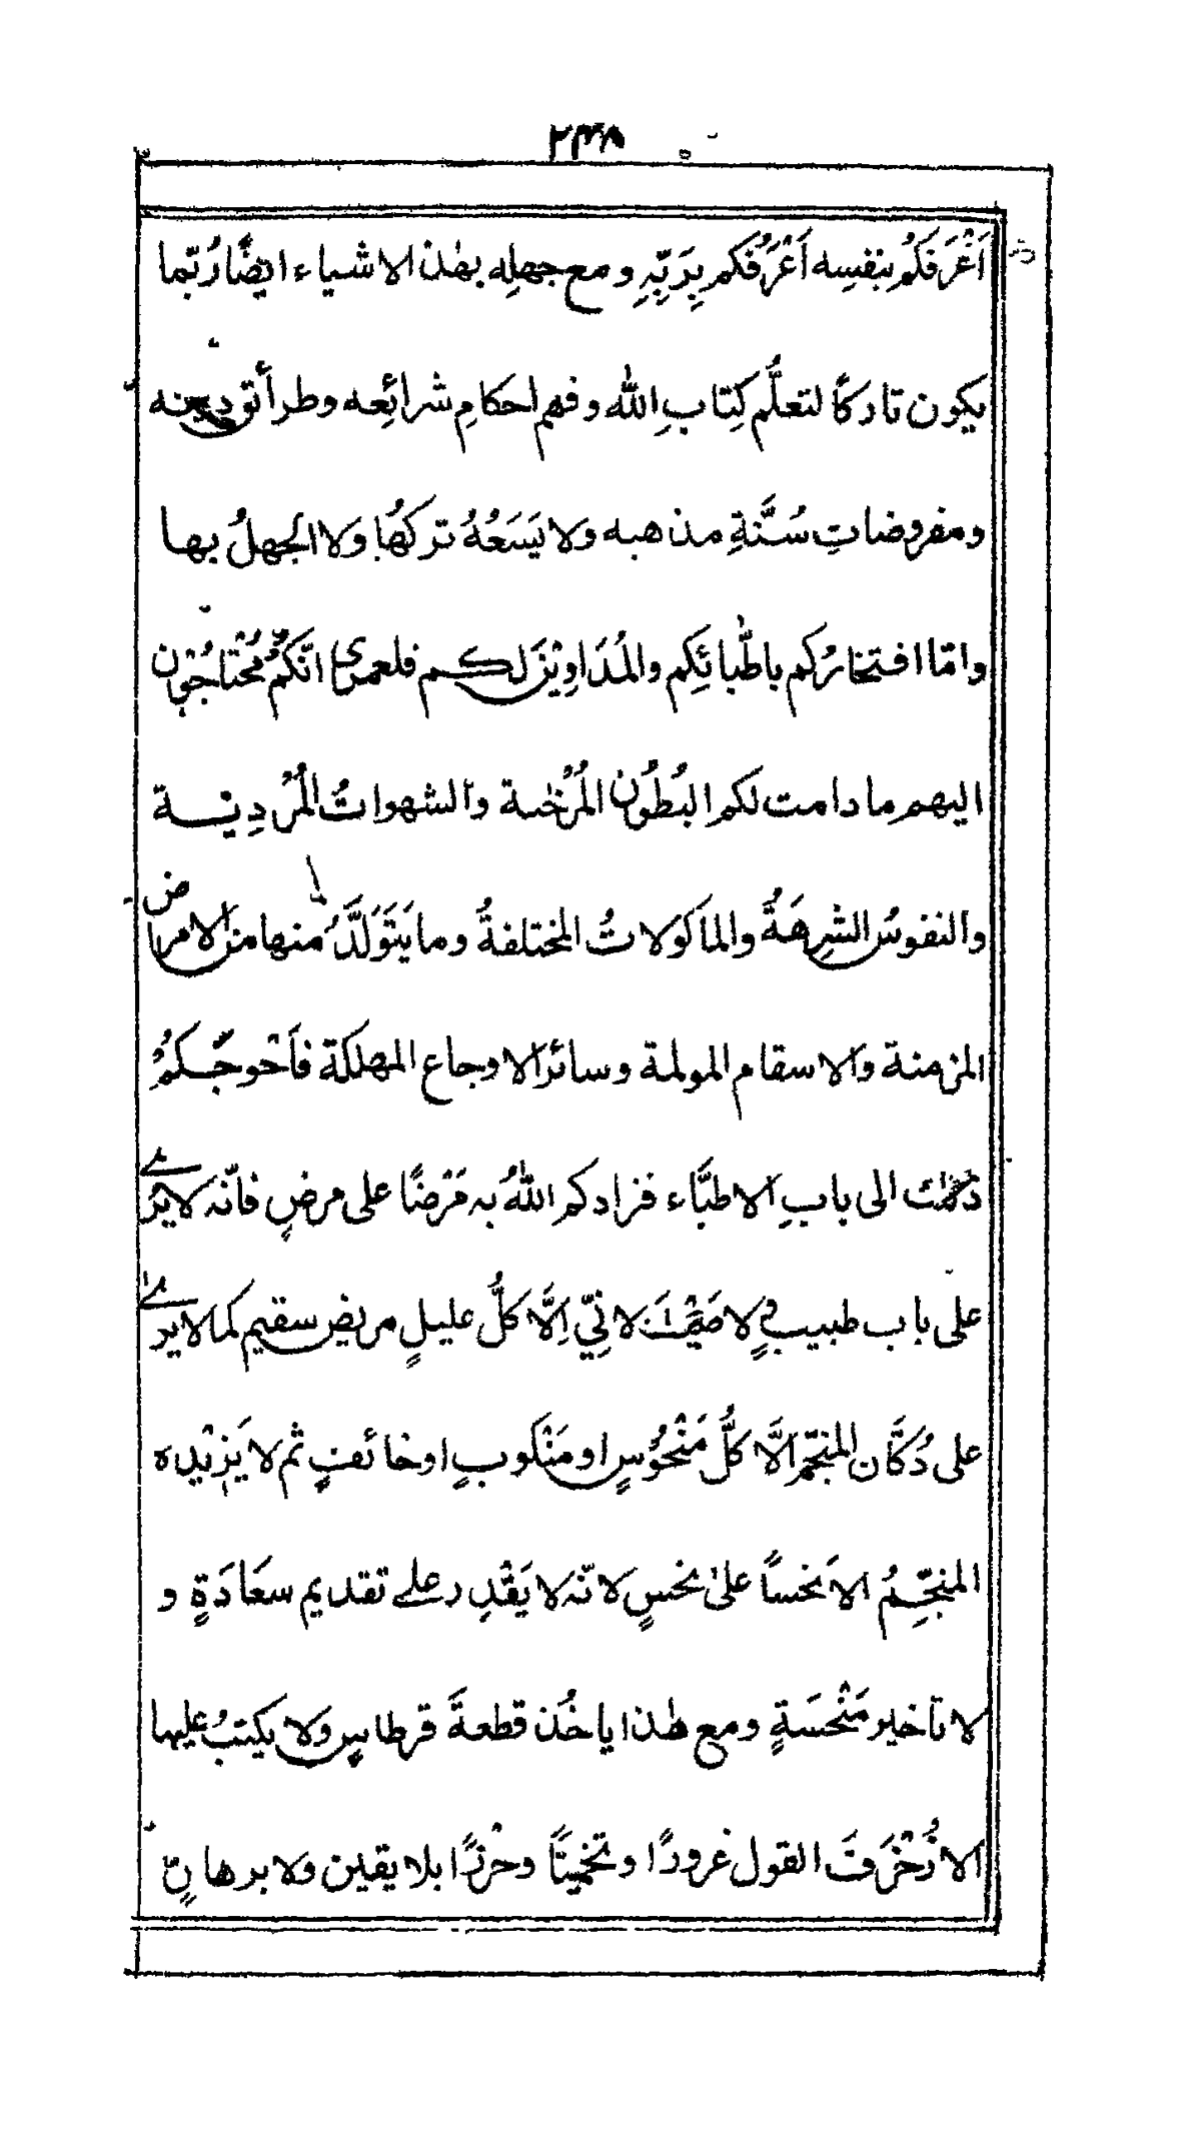 ۲۴۸
اَعْرَفَكُمْ بنفسِه اَعْرَفُكم بِرَبِّهٖ ومع جهلِه بهٰذه الاشياء ايضًا رُبّما
يكون تاركًا لتعلُّم كِتابِ اللّٰه وفهم احكامِ شرائِعه وطرأئق دينه
ومفروضاتِ سُنَّةِ مذهبه ولا يَسَعُهُ تركهُا ولا الجهلُ بها
وامّا افتخارُكم باطّبائِكم والمُدَاوِيْنَ لكم فلعمرى انّكمْ مُحْتاجُوْن
اليهم ما دامت لكم البُطُونُ المُرْخٰية والشهواتُ المُرْدِية
والنفوسُ الشرِهَةُ والماَكولاتُ المختلفةُ وما يَتَوَلَّدُ منها من الامراض
المزمنة والاسقام المولمة وسائر الاوجاع المهلكة فاَحْوجَكمْ
ذلك الى بابِ الاطبَّاء فزادكم اللّٰهُ به مَرَضًا على مرضٍ فانّه لا يرٰے
على باب طبيبٍ ولا اِلَّا كلُّ عليلٍ مريض سقيم كما لا يرٰے
على دُكَّان المنجّم الَّا كلُّ مَنْحُوْسٍ او مَنْكوبٍ او خائفٍ ثم لا يَزِيْده
المنجِّمُ الاَ نحساً علىٰ نحسٍ لانّه لا يَقْدِر علے تقديم سعَادَةٍ و
لا تأخير مَنْحَسَةٍ ومع هٰذا ياخُذ قطعةَ قرطاسٍ ولا يكتبُ عليها
الا زُخْرَفَ القول غرورًا وتخمينًا وحْزرًا بلا يقين ولا برهانٍ